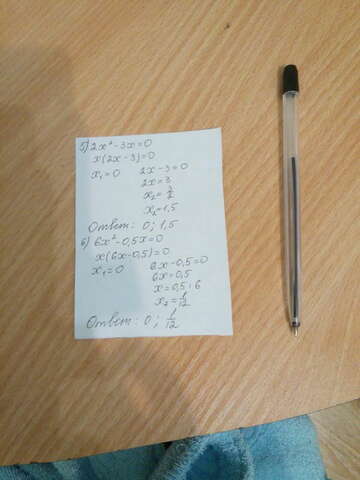 5) 2x² - 3x = 0
x(2x - 3) = 0
x₁ = 0 2x - 3 = 0
2x = 3
x₂ = 3/2
x₂ = 1,5
Ответ: 0; 1,5
6) 6x² - 0,5x = 0
x(6x - 0,5) = 0
x₁ = 0 6x - 0,5 = 0
6x = 0,5
x = 0,5 : 6
x₂ = 1/12
Ответ: 0; 1/12